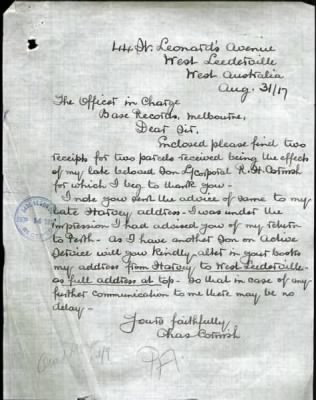 44 St. Leonard's Avenue
West Leederville
West Australia
Aug. 31/17
The Officer in Charge
Base Records, Melbourne,
Dear Sir,
Enclosed please find two
receipts for two parcels received being the effects
of my late beloved Son L/Corporal R. H. Cornish
for which I beg to thank you -
I note you sent the advice of same to my
late Harvey address - I was under the
impression I had advised you of my return
to Perth - As I have another Son on Active
Service will you kindly alter in your books
my address from Harvey to West Leederville -
as full address at top - So that in case of any
further communication to me there may be no
delay -
Yours faithfully
Chas Cornish